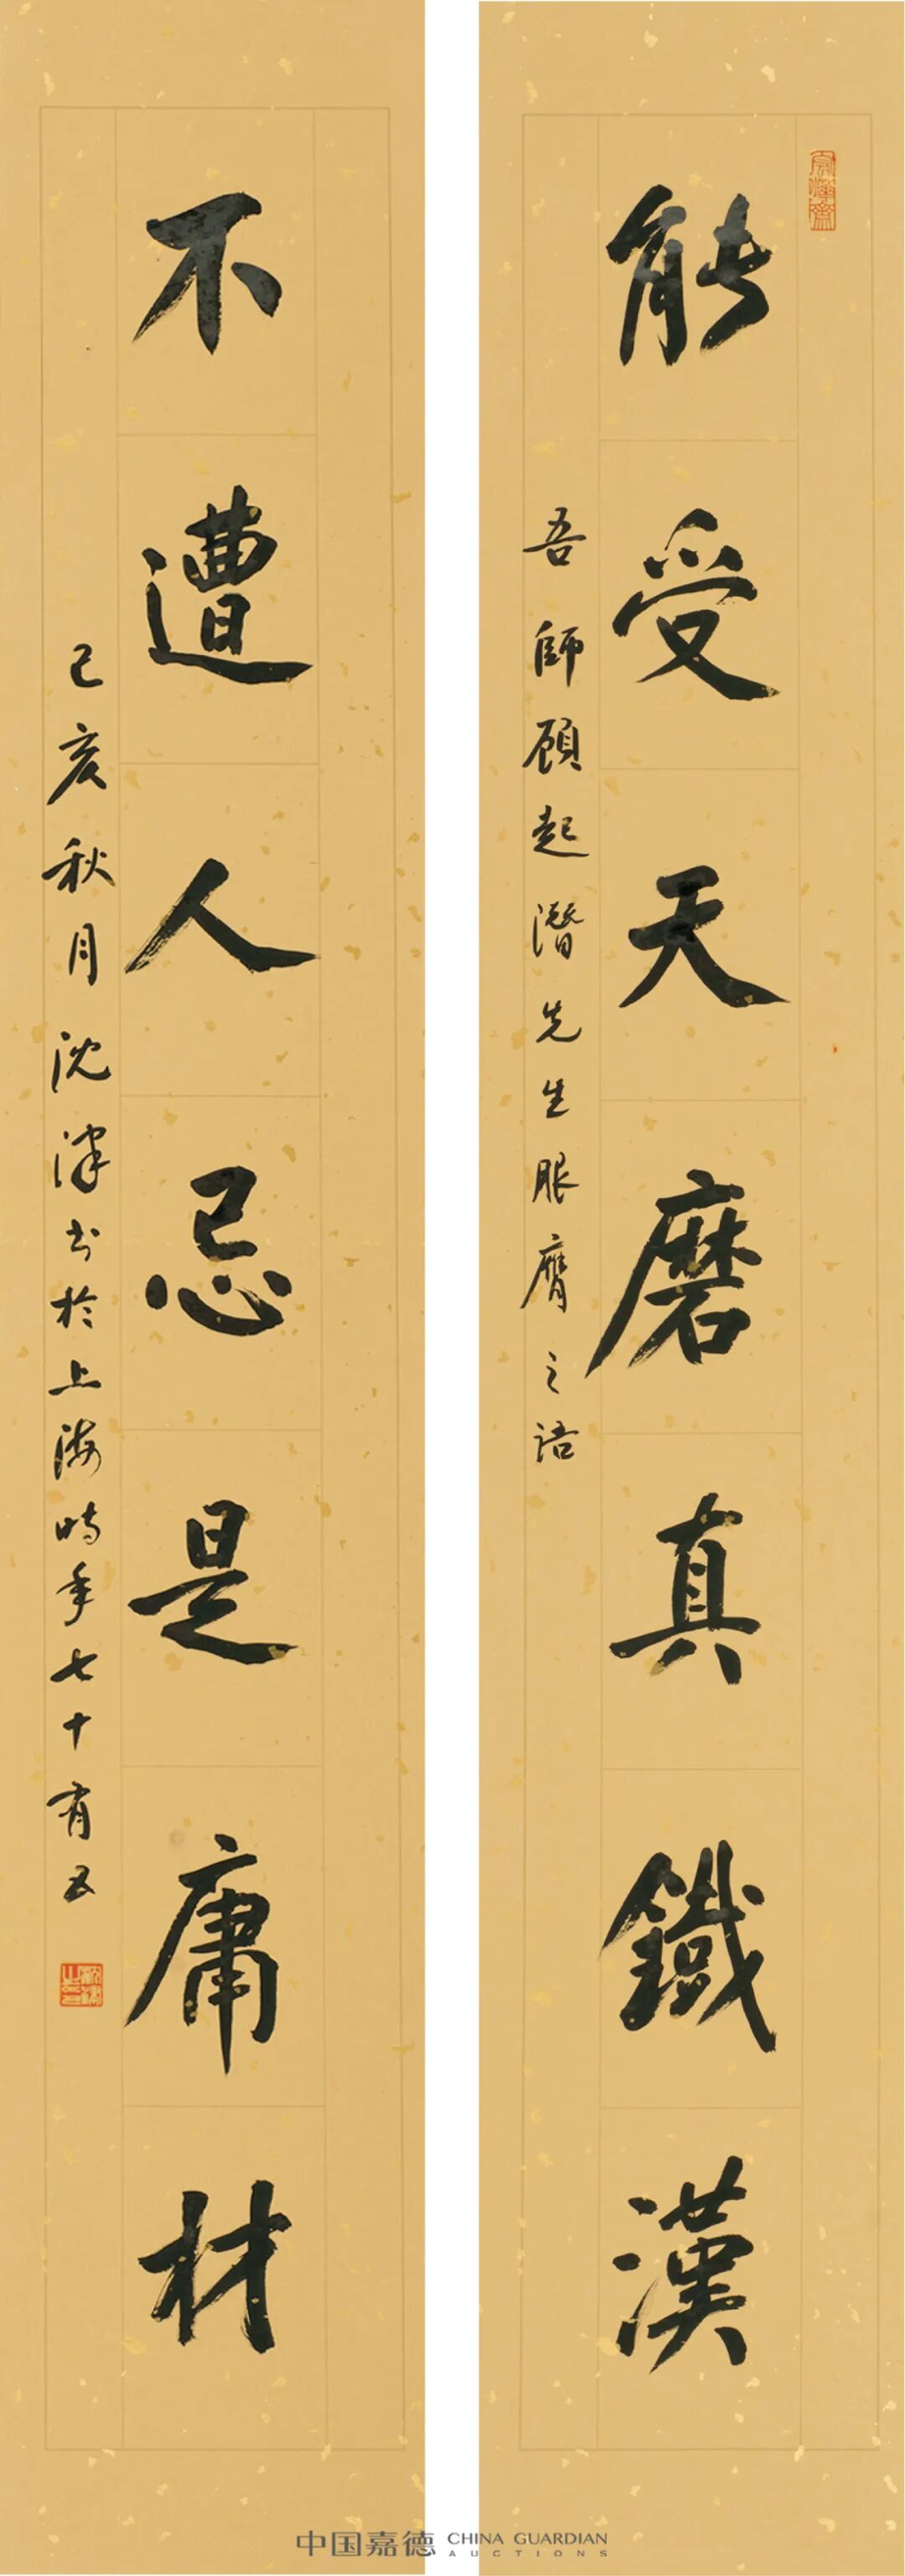 能受天磨真鐵漢
吾師顧起潛先生服膺之語
不遭人忌是庸材
己亥秋月沈津书於上海時年七十有五
中国嘉德 CHINA GUARDIAN
AUCTIONS